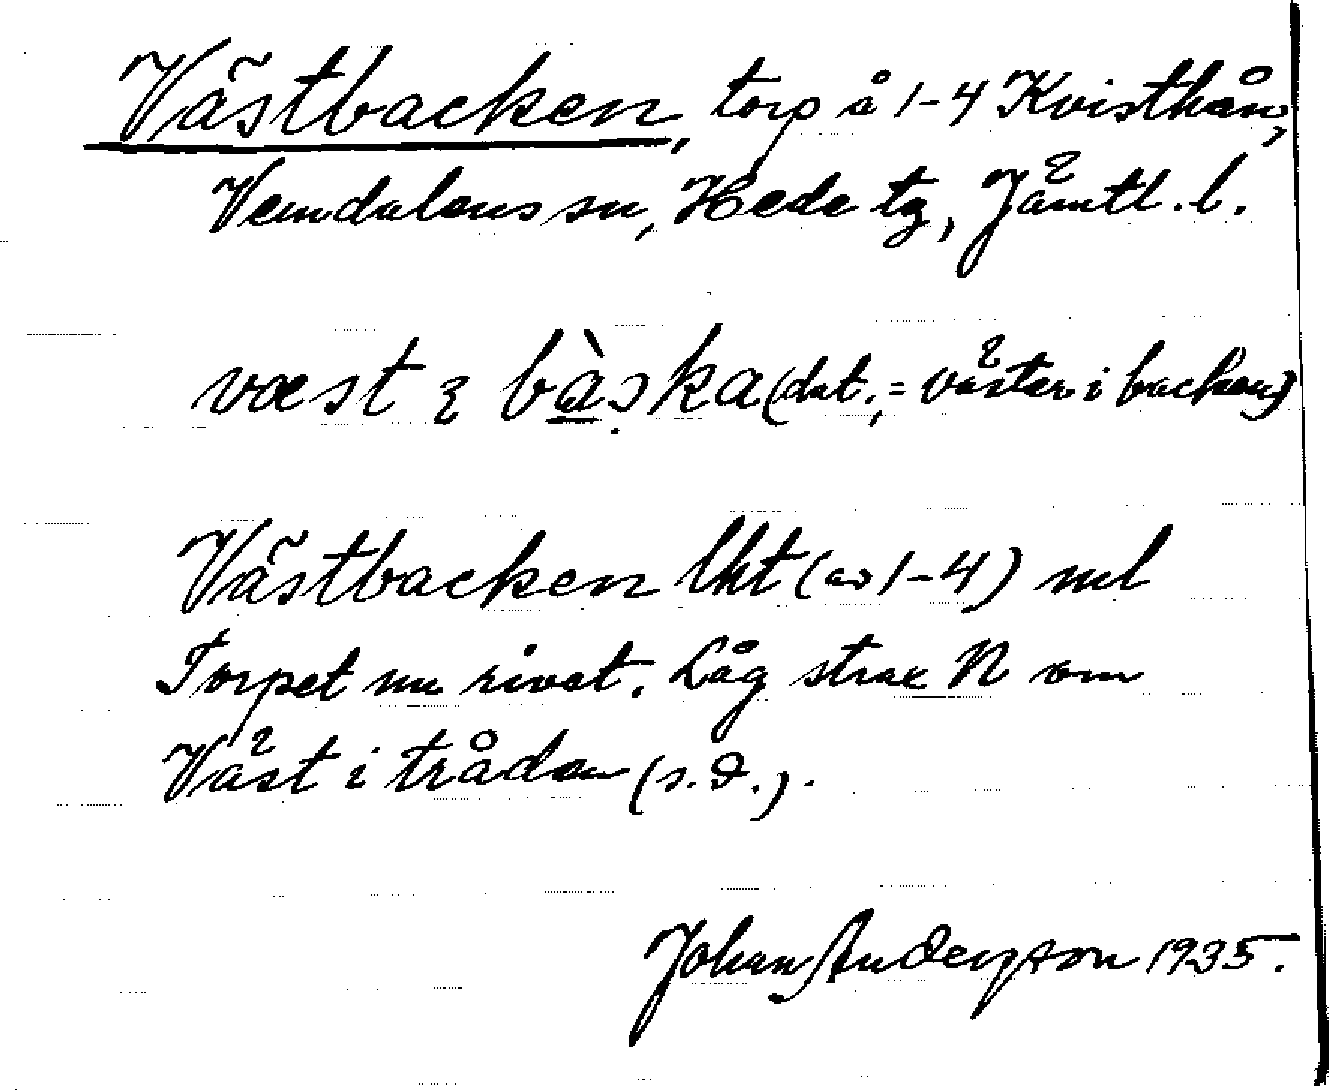 Västbacken, torp å 1-4 Kvisthån,
Vemdalens sn, Hede tg, Jämtl. l.
væst i bàska (dat., = väster i backen)
Västbacken lkt (av 1-4) ml
Torpet nu rivet. Låg strax N om
Väst i trådan (s.d.).
Johan Anderson 1935.